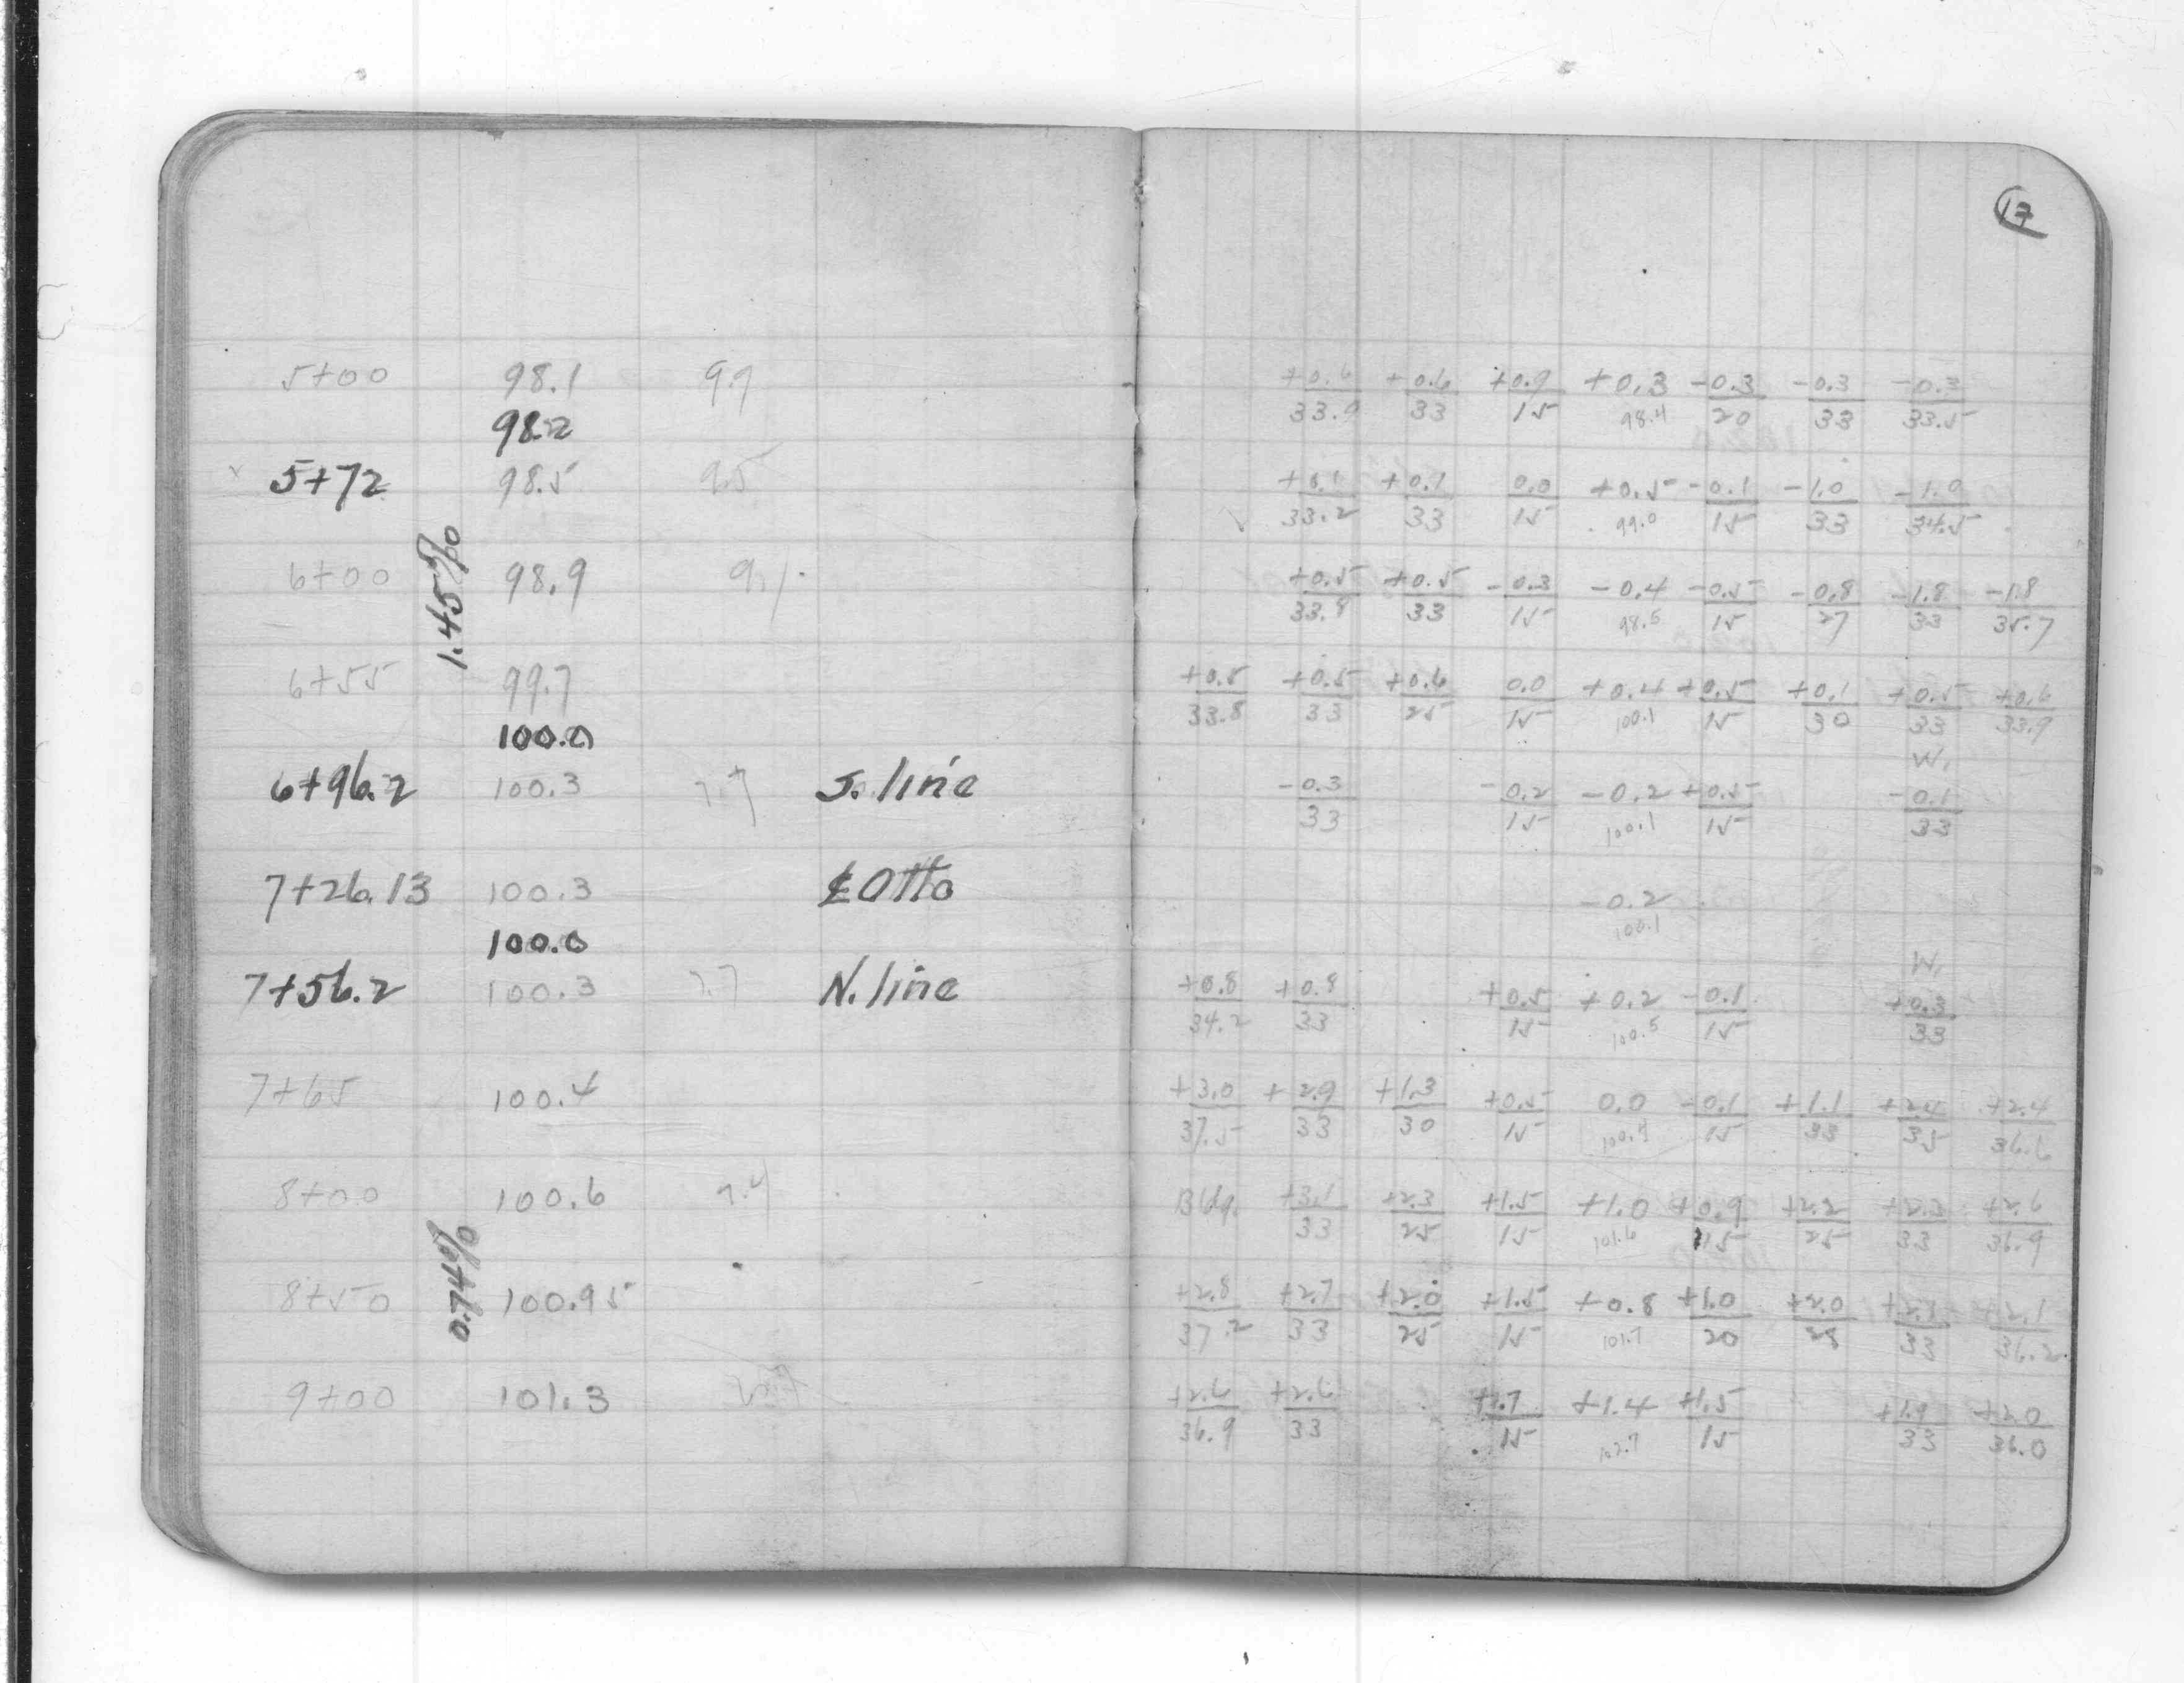 17
5+00 98.1 9.9 +0.6/33.9 +0.6/33 +0.9/15 +0.3 -0.3/20 -0.3/33 -0.3/33.5
98.2 98.4
5+72 98.5 9.5 +0.1/33.2 +0.1/33 0.0/15 +0.5 -0.1/15 -1.0/33 -1.0/34.5
99.0
1.45%
6+00 98.9 9.1 +0.5/33.8 +0.5/33 -0.3/15 -0.4 -0.5/15 -0.8/27 -1.8/33 -1.8/35.7
98.5
6+55 99.7 +0.5/33.8 +0.5/33 +0.6/25 0.0/15 +0.4 +0.5/15 +0.1/30 +0.5/33 +0.6/33.9
100.0 100.1
W.
6+96.2 100.3 7.7 S. line -0.3/33 -0.2/15 -0.2 +0.5/15 -0.1/33
100.1
7+26.13 100.3 ℄ Otto -0.2
100.0 100.1
W.
7+56.2 100.3 7.7 N. line +0.8/34.2 +0.8/33 +0.5/15 +0.2 -0.1/15 +0.3/33
100.5
7+65 100.4 +3.0/37.5 +2.9/33 +1.3/30 +0.5/15 0.0 -0.1/15 +1.1/33 +2.4/35 +2.4/36.6
100.4
8+00 100.6 7.4 Bldg. +3.1/33 +2.3/25 +1.5/15 +1.0 +0.9/15 +2.2/25 +2.3/33 +2.6/36.9
101.6
0.74%
8+50 100.95 +2.8/37.2 +2.7/33 +2.0/25 +1.5/15 +0.8 +1.0/20 +2.0/25 +2.1/33 +2.1/36.2
101.7
9+00 101.3 +2.6/36.9 +2.6/33 +1.7/15 +1.4 +1.5/15 +1.9/33 +2.0/36.0
102.7